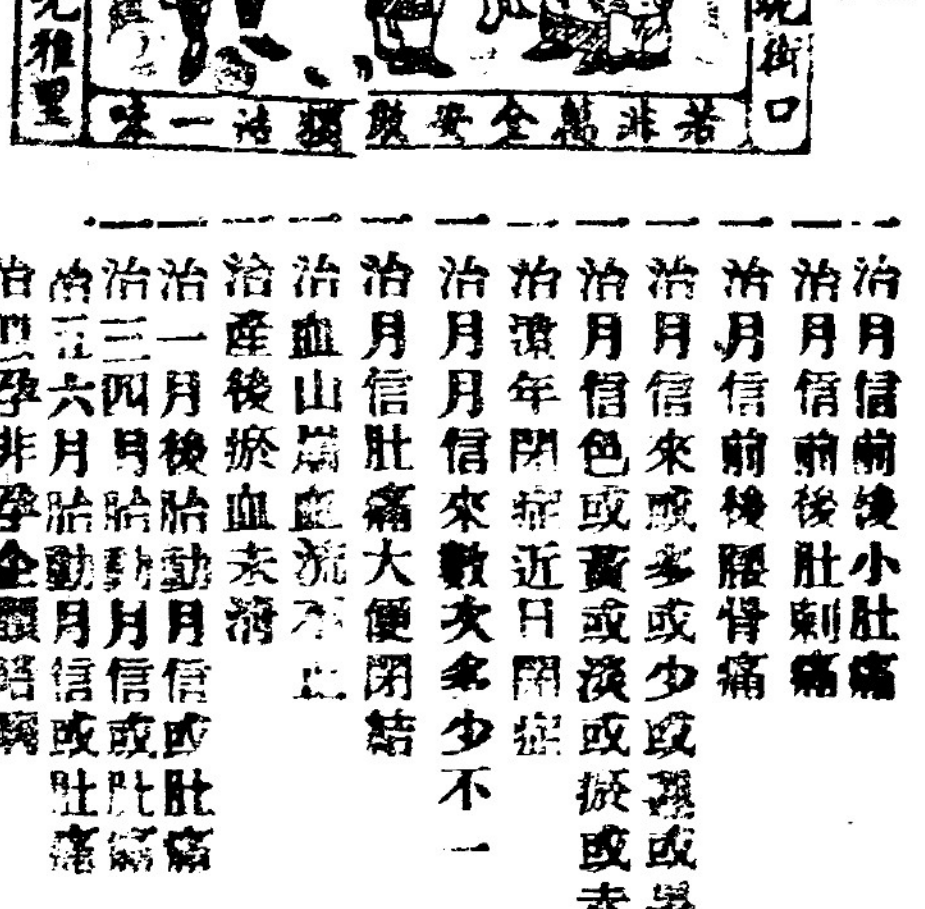 口
若非萬全安敢獨沽一味
雅里
一治月信前後小肚痛
一治月信前後肚刺痛
一治月信前後腰骨痛
一治月信來或多或少或或
一治月信色或黃或淡或瘀或赤
一治年閉症近日閉症
一治月月信來數次多少不一
一治月信肚痛大便閉結
一治血山崩血流不止
一治產後瘀血未清
一治一月後胎動月信或肚痛
一治三四月胎動月信或肚痛
治五六月胎動月信或肚痛
治孕非孕全